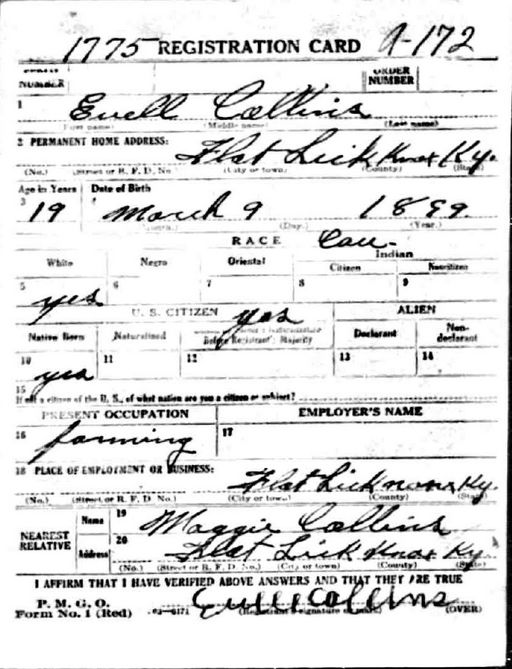 1775 REGISTRATION CARD A-172
SERIAL NUMBER ORDER NUMBER
1 Euell Collins
(First name) (Middle name) (Last name)
2 PERMANENT HOME ADDRESS: Flat Lick Knox Ky.
(No.) (Street or R. F. D. No.) (City or town) (County) (State)
Age in Years Date of Birth
3 19 4 March 9 1899.
(Month.) (Day.) (Year.)
RACE Cau-
White Negro Oriental Indian
Citizen Noncitizen
5 yes 6 7 8 9
U. S. CITIZEN yes ALIEN
Native Born Naturalized Before Registrant's Majority Declarant Non-declarant
10 yes 11 12 13 14
15 If not a citizen of the U. S., of what nation are you a citizen or subject?
PRESENT OCCUPATION EMPLOYER'S NAME
16 farming 17
18 PLACE OF EMPLOYMENT OR BUSINESS: Flat Lick Ky.
(No.) (Street or R. F. D. No.) (City or town) (County) (State)
NEAREST RELATIVE Name 19 Maggie Collins
Address 20 Flat Lick Knox Ky
(No.) (Street or R. F. D. No.) (City or town) (County) (State)
I AFFIRM THAT I HAVE VERIFIED ABOVE ANSWERS AND THAT THEY ARE TRUE
P. M. G. O.
Form No. 1 (Red) 03-6171 Euell Collins
(Registrant's signature or mark) (OVER)